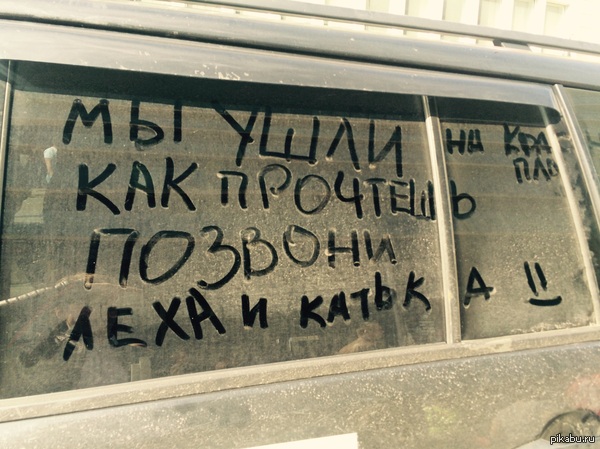 МЫ УШЛИ НА КРА
ПЛО
КАК ПРОЧТЕШЬ
ПОЗВОНИ
ЛЕХА И КАТЬКА !!
pikabu.ru